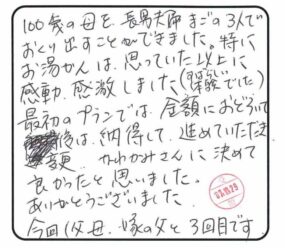 100歳の母を、長男夫婦、まごの3人で
おくり出すことができました。特に
お湯かんは、思っていた以上に
感動、感激しました(深謝でした)
最初のプランでは、金額におどろいて
後は、納得して、進めていただき
変更、かわかみさんに決めて
良かったと思いました。
ありがとうございました。
今回(父母、嫁の父と3回目です